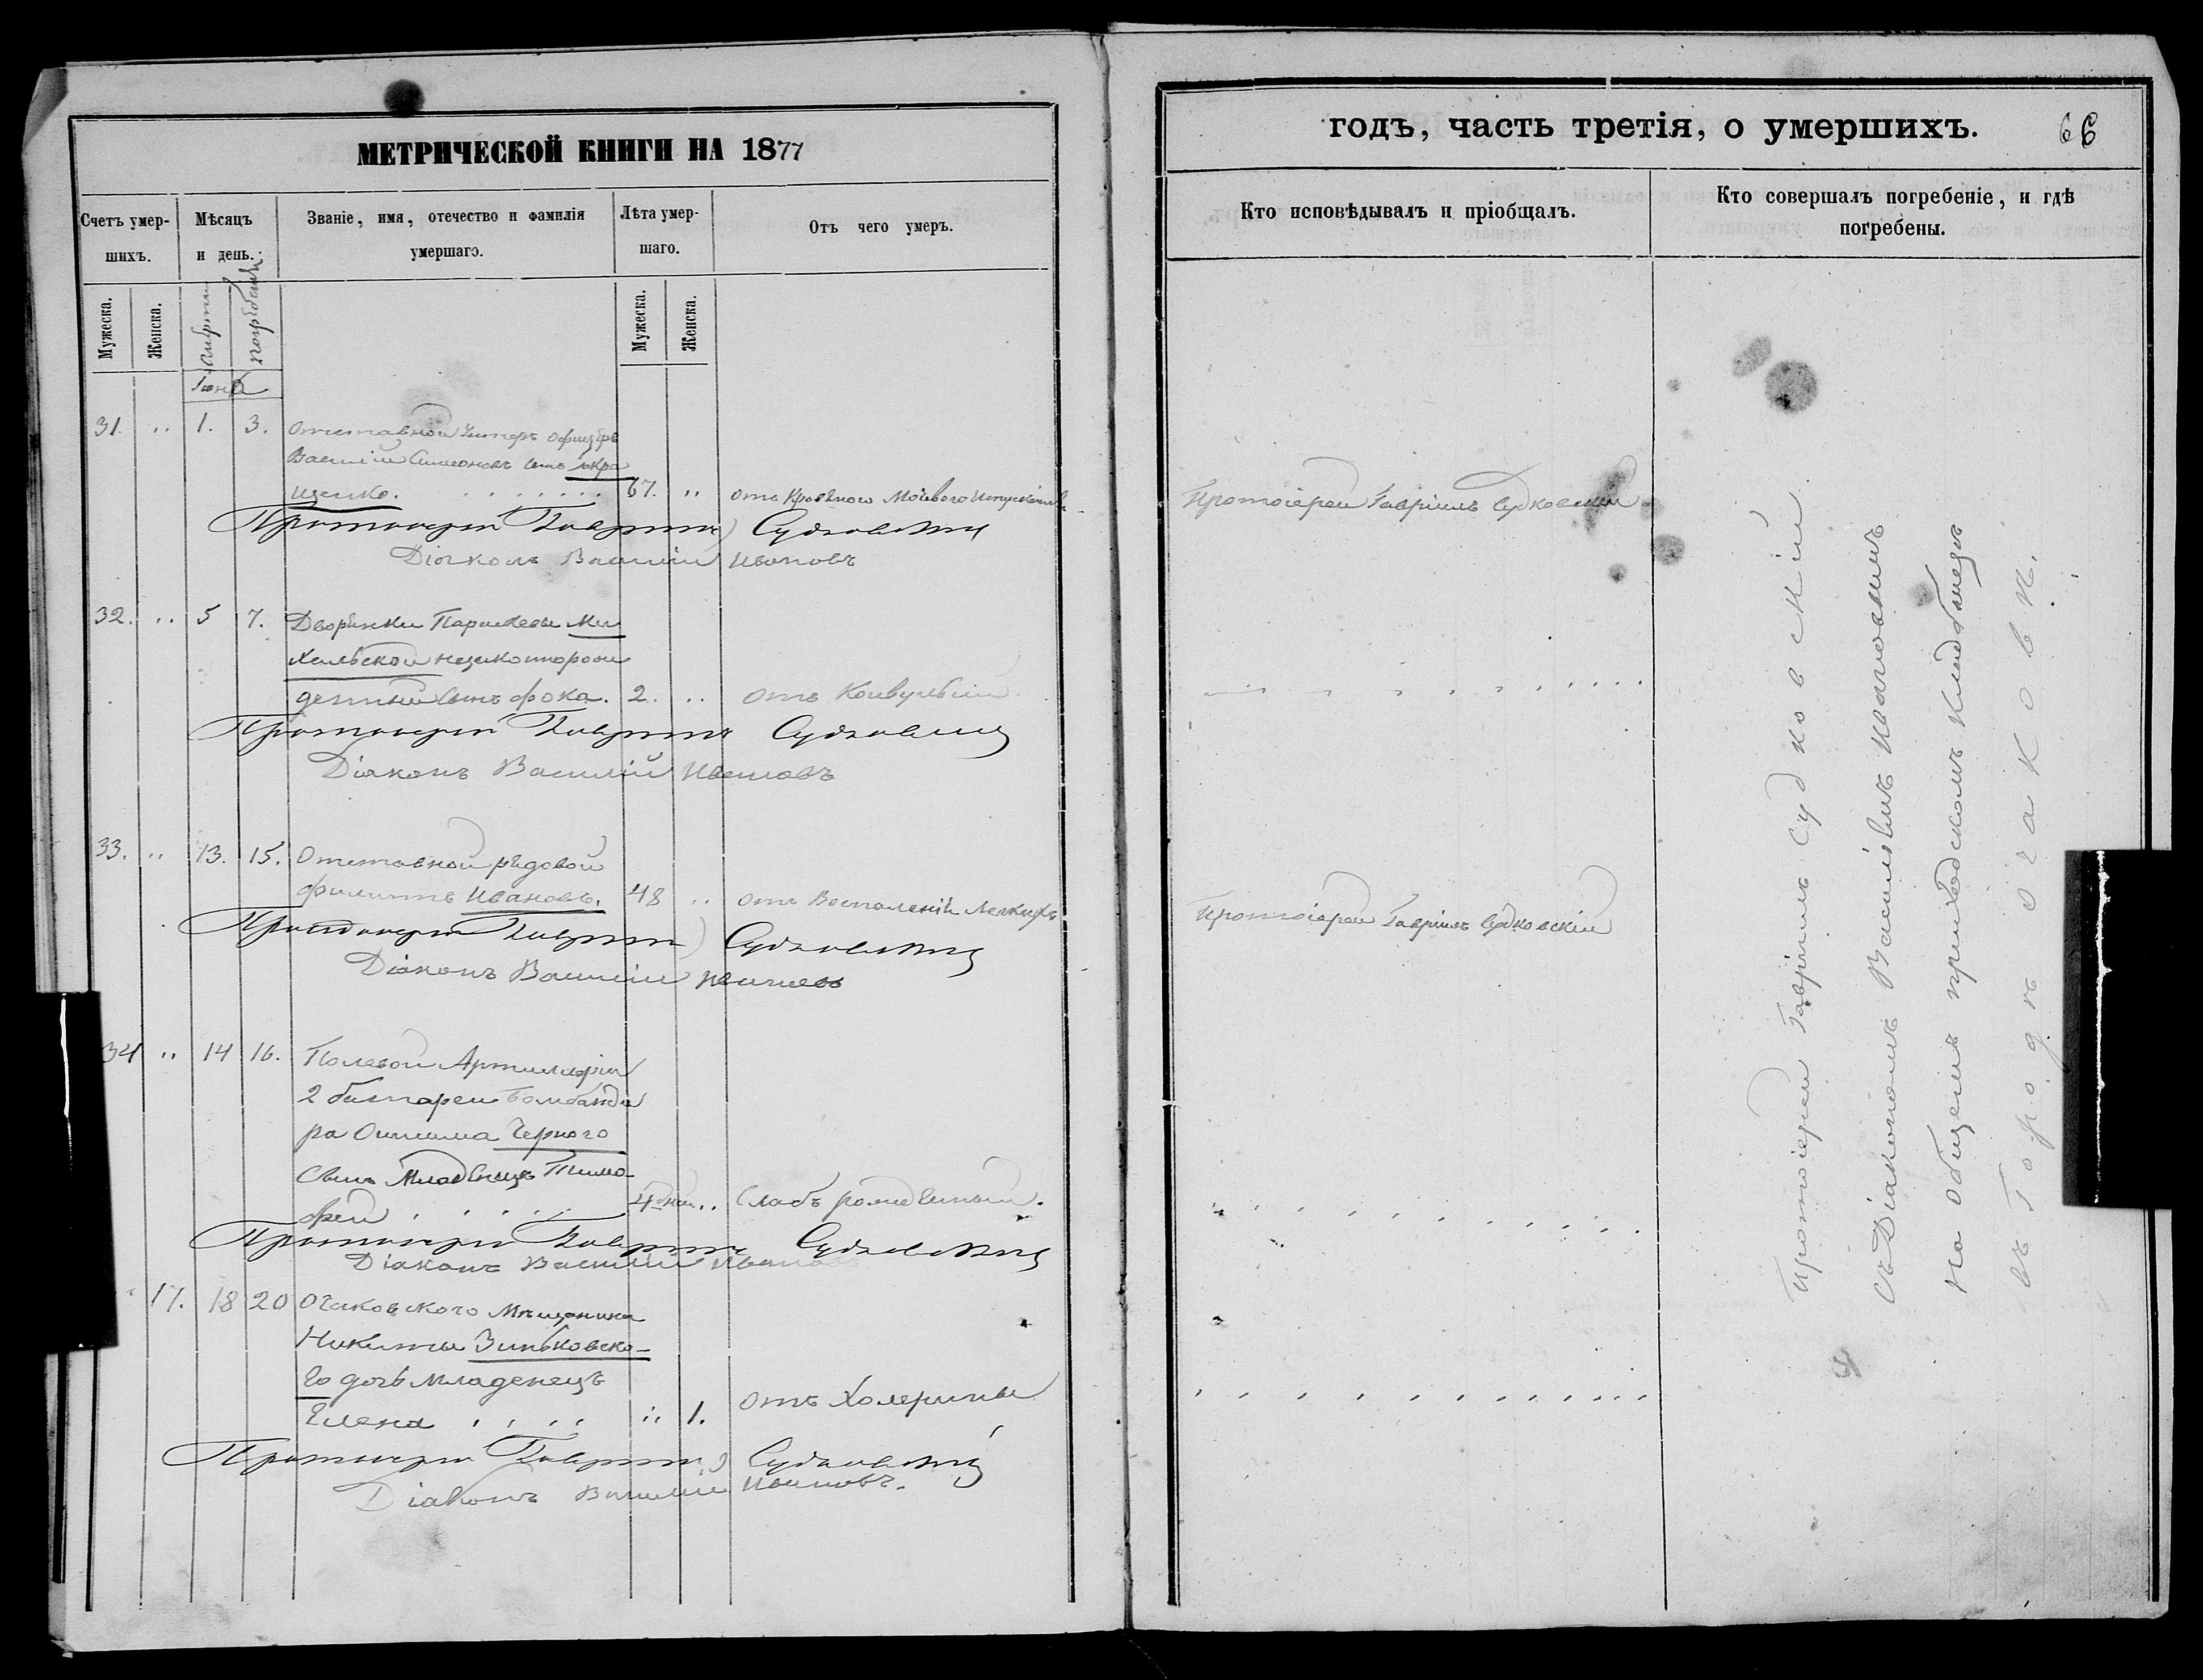 МЕТРИЧЕСКОЙ КНИГИ НА 1877
Счетъ умер-
шихъ.
Мѣсяцъ
и день.
Званіе, имя, отечество и фамилія
умершаго.
Лѣта умер-
шаго.
Отъ чего умеръ.
Мужеска.
Женска.
смерти
погребенія
Мужеска.
Женска.
Іюня
31. „ 1. 3. Отставной Унтеръ Офицеръ
Василій Симеоновъ сынъ
щенко. 67. „ отъ Кровяного
Протоіерей Гавріилъ Судковскій
Діаконъ Василій Ивановъ
32. „ 5 7. Дворянки Параскевы Ми
хельской незаконнорож
денный сынъ Фока. 2. „ отъ Конвульсіи
Протоіерей Гавріилъ Судковскій
Діаконъ Василій Ивановъ
33. „ 13. 15. Отставной рядовой
Филиппъ Ивановъ. 48 „ отъ Воспаленія Легкихъ
Протоіерей Гавріилъ Судковскій
Діаконъ Василій Ивановъ
34 „ 14 16. Полевой Артиллеріи
2 батареи Бомбарди
ра Онисима Черного
сынъ Младенецъ Тимо-
фей 4 дней „ Слабъ рожденный.
Протоіерей Гавріилъ Судковскій
Діаконъ Василій Ивановъ
17. 18 20 Очаковского Мѣщанина
Никиты Зиньковско-
го дочь младенецъ
Елена „ 1. отъ Холерины
Протоіерей Гавріилъ Судковскій
Діаконъ Василій Ивановъ.
годъ, часть третія, о умершихъ. 66
Кто исповѣдывалъ и пріобщалъ.
Кто совершалъ погребеніе, и гдѣ
погребены.
Протоіерей Гавріилъ Судковскій
Протоіерей Гавріилъ Судковскій
Протоіерей Гавріилъ Судковскій
съ Діакономъ Василіемъ Ивановымъ
на общемъ приходскомъ кладбищѣ
въ городѣ Очаковѣ.